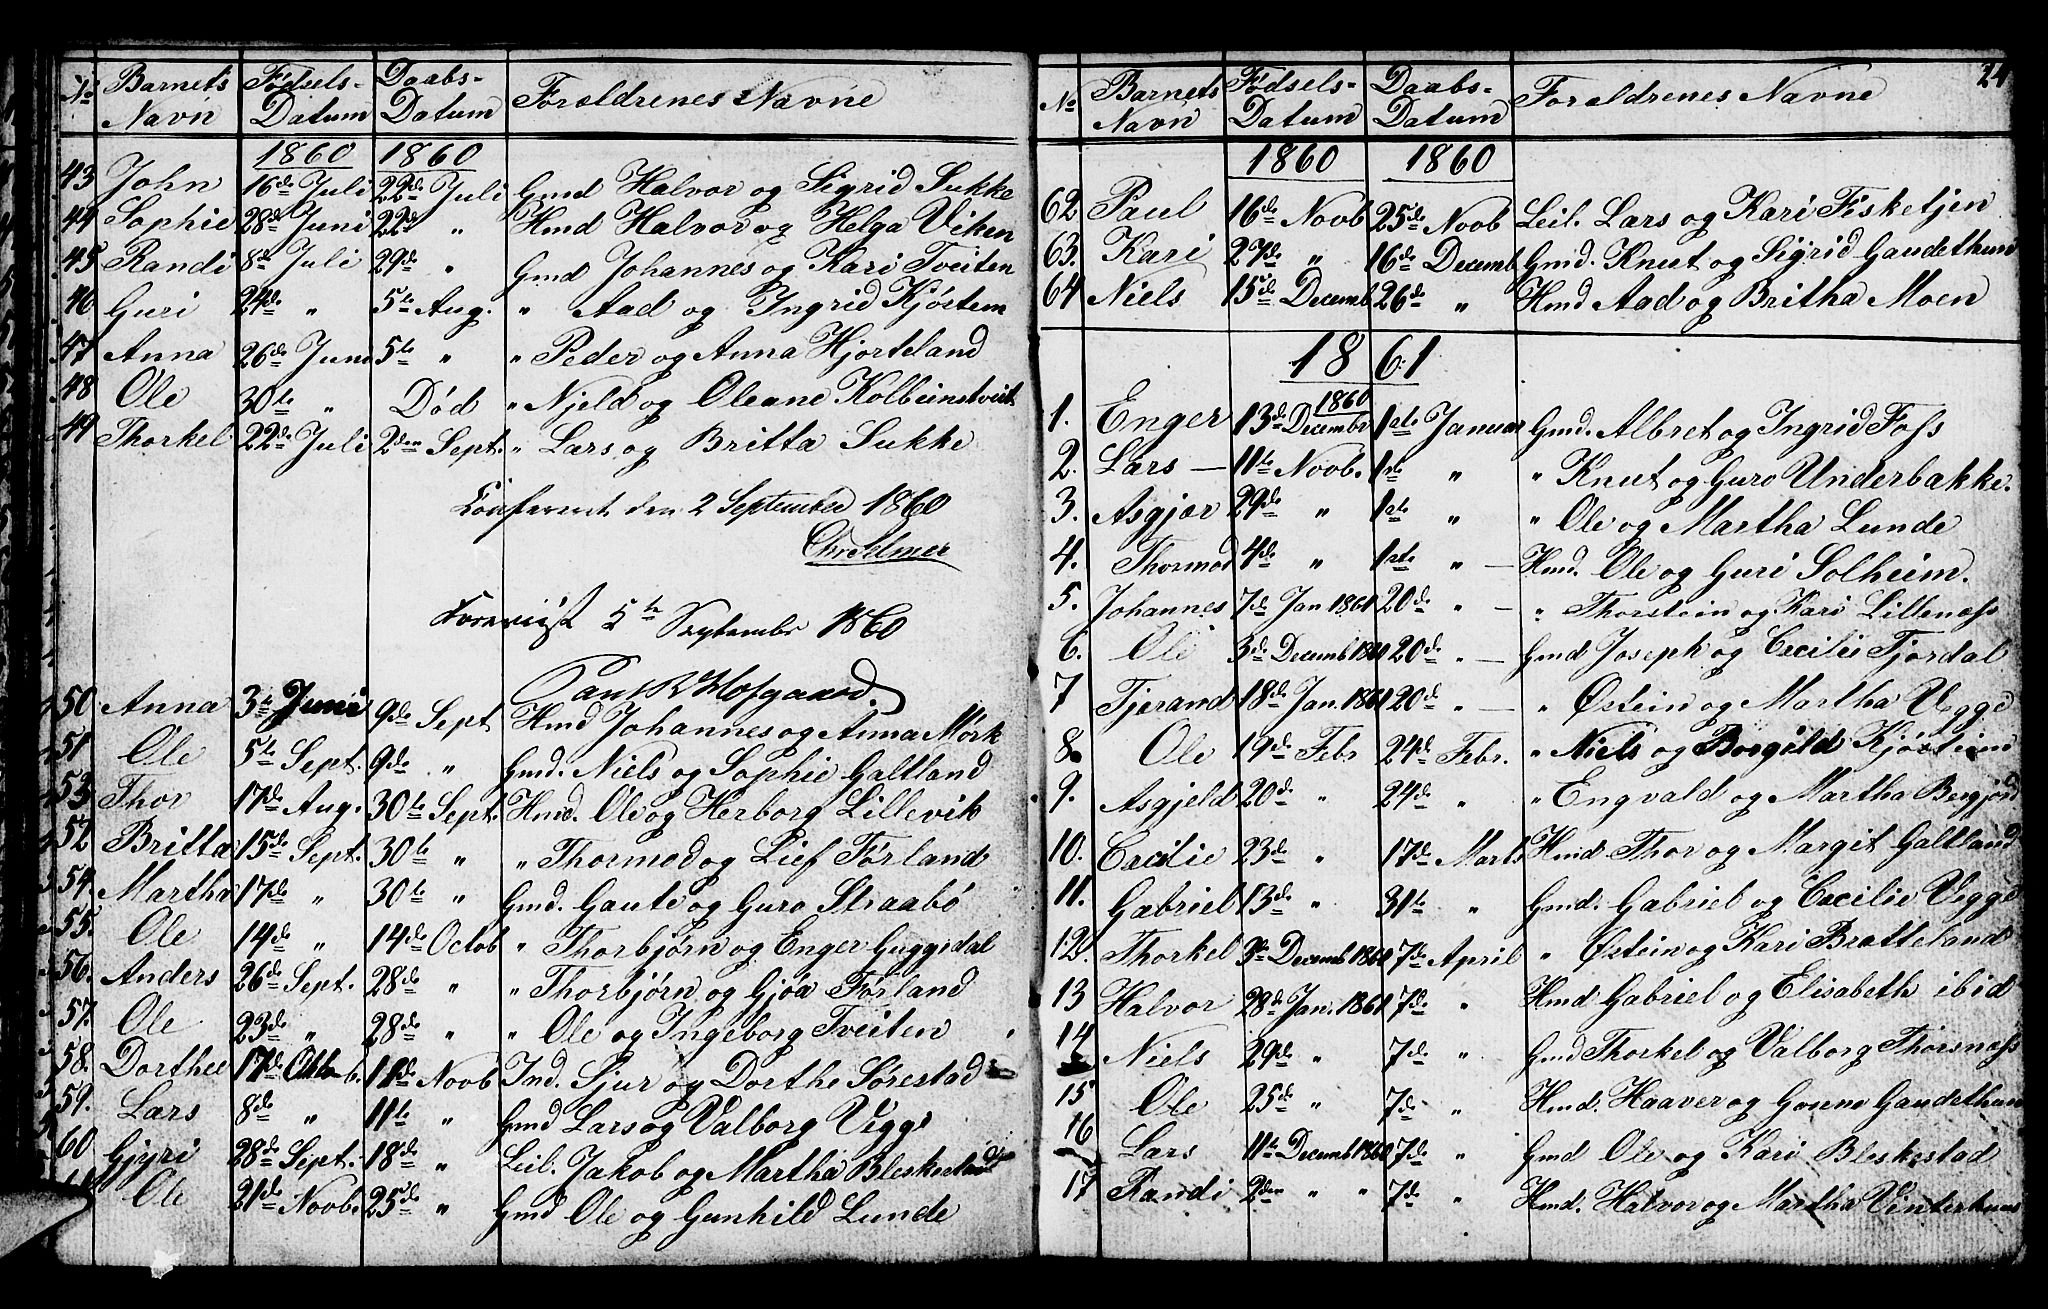 No Barnets Navn Fødsels-Datum Daabs-Datum Forældrenes Navne
1860 1860
43 John 16de Juli 22de Juli Gmd Halvor og Sigrid Sukke
44 Sophie 28de Juni 22de " Hmd Halvor og Helga Viken
45 Randi 8de Juli 29de " Gmd Johannes og Kari Tveiten
46 Guri 24de " 5te Aug. " Aad og Ingrid Kjøstem
47 Anna 26de Juni 5te " " Peder og Anna Hjorteland
48 Ole 30te " Død " Njeld og Oleane Kolbeinstveit
49 Thorkel 22de Juli 2den Sept. " Lars og Britta Sukke
Confereret den 2 September 1860
Chr Selmer
Foreviist 5te September 1860
50 Anna 3te Juni 9de Sept Hmd Johannes og Anna Mørk
51 Ole 5te Sept. 9de " Gmd. Niels og Sophie Galtland
53 Thor 17de Aug. 30te Sept. Hmd. Ole og Herborg Lillevik
52 Britta 15de Sept. 30te " " Thormod og Lief Førland
54. Martha 17de " 30te " Gmd. Gaute og Guro Straabø
55. Ole 14de " 14de Octob " Thorbjørn og Enger Guggedal
56. Anders 26de Sept. 28de " " Thorbjørn og Gjøa Førland
57. Ole 23de " 28de " " Ole og Ingeborg Tveiten
58. Dorthee 17de Octob. 11te Novb Ind. Sjur og Dorthe Sørestad
59. Lars 8de " 11te " Gmd Lars og Valborg Vigge
60 Gjyri 28de Sept. 18de " Leil. Jakob og Martha Bleskestad
Ole 21de Novb. 25de " Gmd Ole og Gunhild Lunde
24
No Barnets Navn Fødsels-Datum Daabs-Datum Forældrenes Navne
1860 1860
62 Paul 16de Novb 25de Novb Leil. Lars og Kari Fisketjen
63. Kari 27de " 16de Decemb Gmd. Knut og Sigrid Gaudethun
64 Niels 15de Decemb 26de " Hmd Aad og Britha Moen
1861
1860
1. Enger 13de Decembr 1ste Januar Gmd. Albret og Ingrid Foss
2. Lars — 11te Novb. 1ste " " Knut og Guro Underbakke.
3. Asgjær 29de " 1ste " " Ole og Martha Lunde
4. Thormod 4de " 1ste " — Hmd. Ole og Guri Solheim.
5. Johannes 7de Jan 1861 20de " — " Thorstein og Kari Lillenæss
6. Ole 3de Decemb 1860 20de " — Gmd Joseph og Cecilie Fjordal
7 Tjerand 18de Jan. 1861 20de " — " Østein og Martha Vigge
8. Ole 19de Febr 24de Febr. " Niels og Borgild Kjøstem
9. Asgjeld 20de " 24de " " Engvald og Martha Bergjord
10. Cecilie 23de " 17de Marts Hmd Thor og Margit Galtland
11. Gabriel 13de " 31te " Gmd. Gabriel og Cecilie Vigge
12. Thorkel 9de Decemb 1860 7de April " Østein og Kari Bratteland
13 Halvor 28de Jan. 1861 7de " Hmd Gabriel og Elisabeth ibid
14 Niels 29de " 7de " Gmd Thorkel og Valborg Thorsnæss
15 Ole 25de " 7de " Hmd. Haaver og Gonne Gaudethun
16 Lars 11te Decemb 1860 7de " Gmd Ole og Kari Bleskestad
17 Randi 2den " " 7de " Hmd. Halvor og Martha Vinterhuus